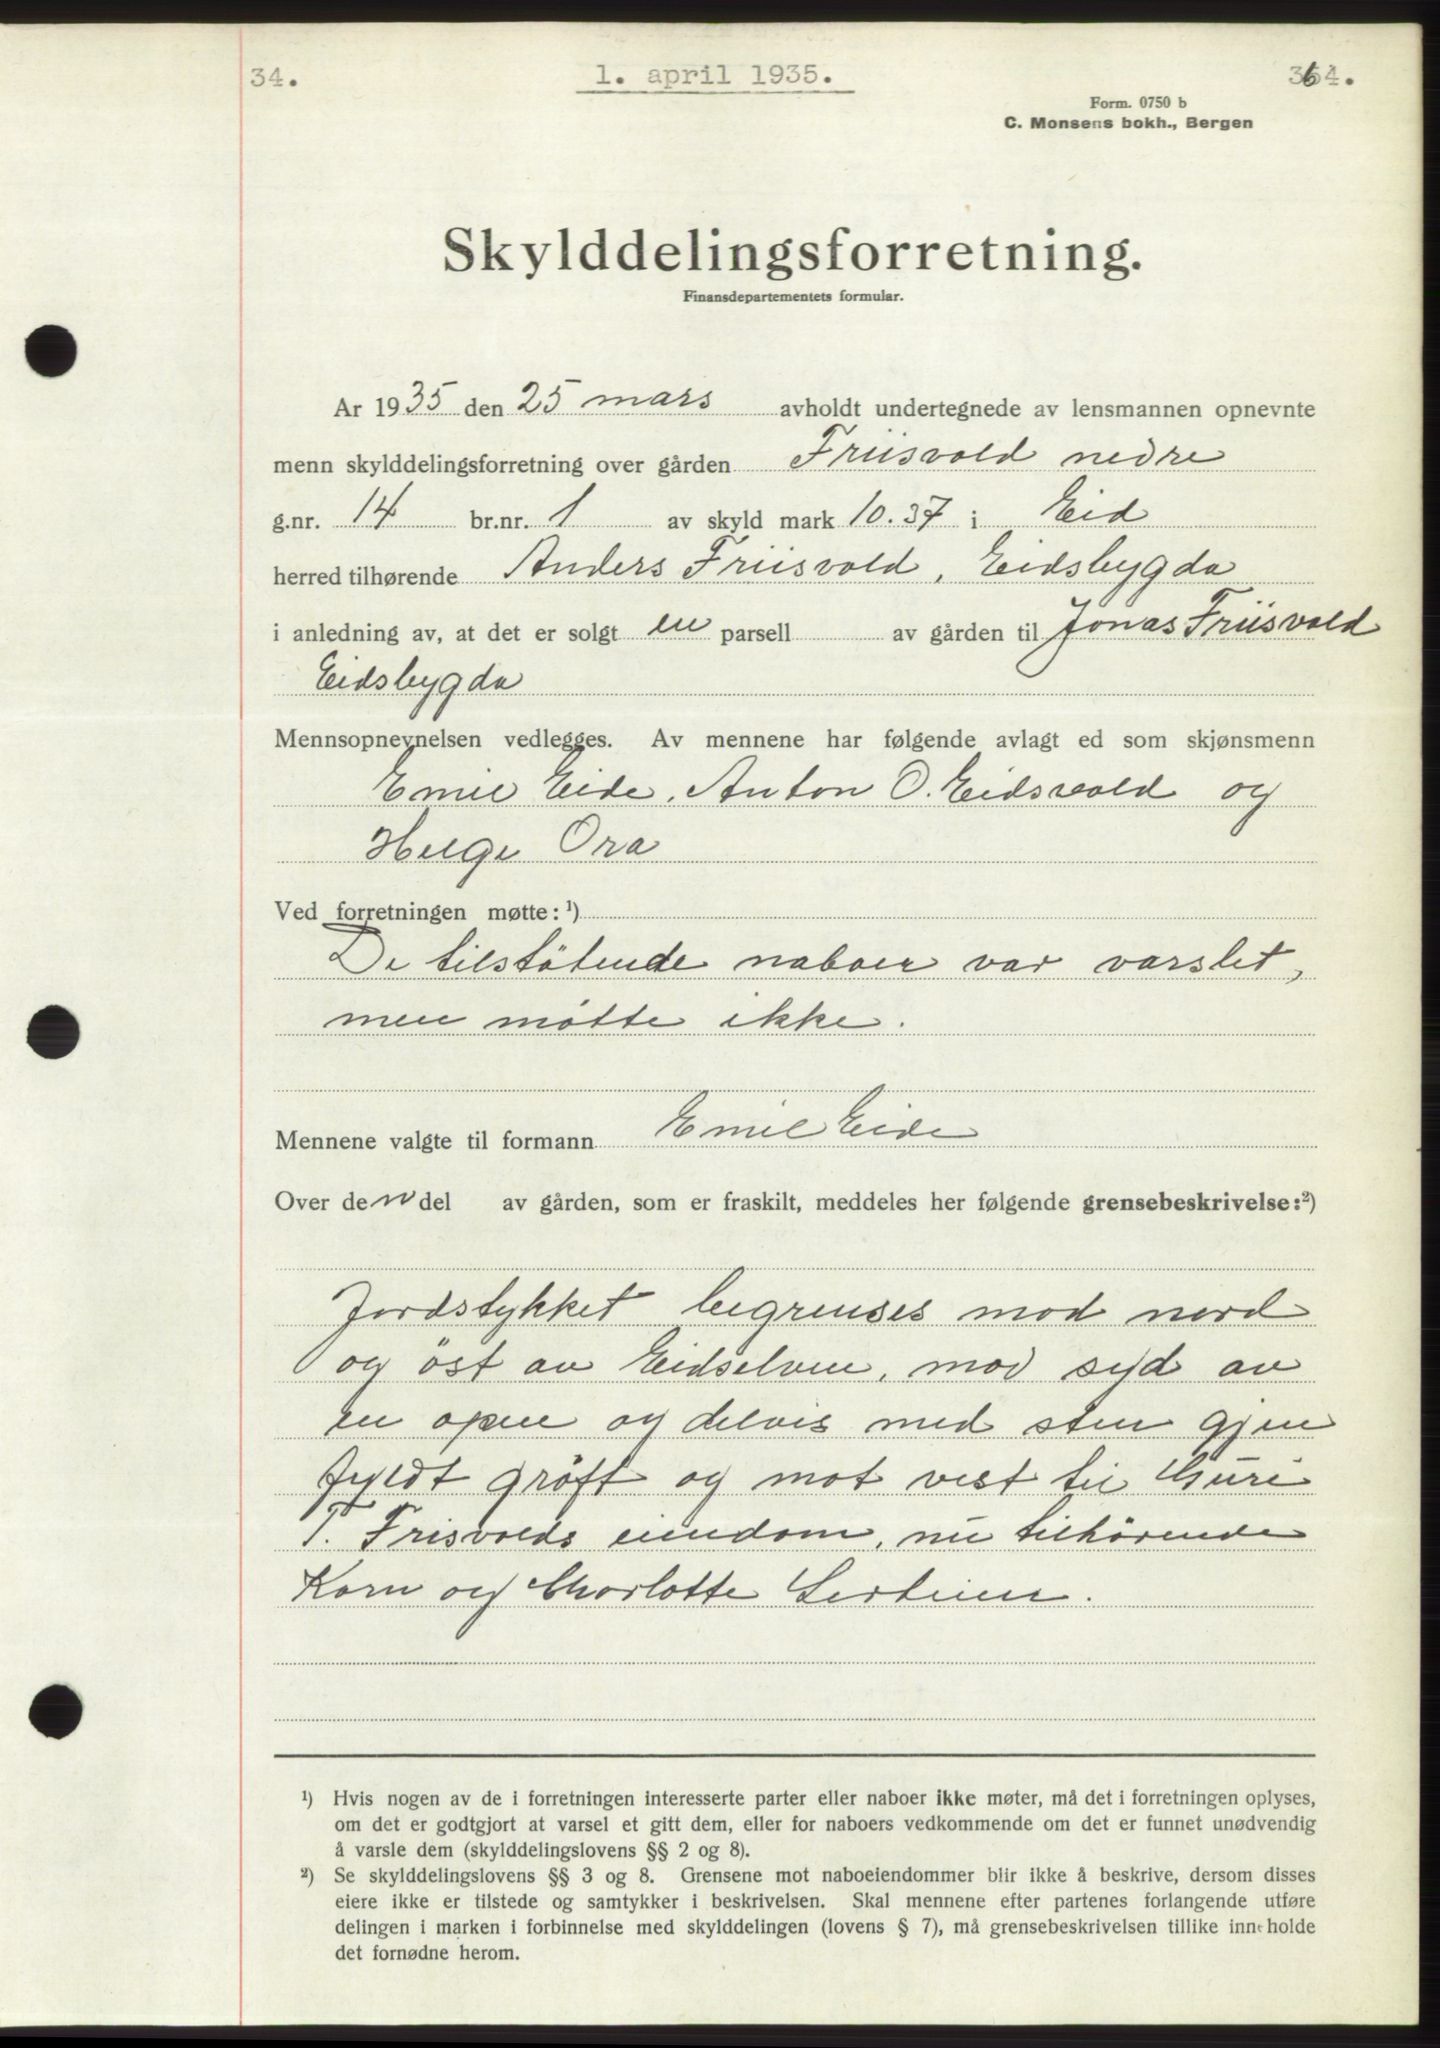 34.
1. april 1935.
364.
Form. 0750 b
C. Monsens bokh., Bergen
Skylddelingsforretning.
Finansdepartementets formular.
Ar 1935 den 25 mars avholdt undertegnede av lensmannen opnevnte
menn skylddelingsforretning over gården Friisvold nedre
g.nr. 14 br.nr. 1 av skyld mark 10.37 i Eid
herred tilhørende Anders Friisvold, Eidsbygda
i anledning av, at det er solgt en parsell av gården til Jonas Friisvold
Eidsbygda
Mennsopnevnelsen vedlegges. Av mennene har følgende avlagt ed som skjønsmenn
Emil Eide, Anton O. Eidsvold og
Helge Ora
Ved forretningen møtte: ¹)
De tilstötende naboer var varslet,
men mötte ikke.
Mennene valgte til formann Emil Eide
Over den del av gården, som er fraskilt, meddeles her følgende grensebeskrivelse: ²)
Jordstykket begrenses mod nord
og öst av Eidselven, mod syd av
en open og delvis med sten gjen
fyldt gröft og mot vest til Guri
T. Frisvolds eiendom, nu tilhörende
Karn og Charlotte
¹) Hvis nogen av de i forretningen interesserte parter eller naboer ikke møter, må det i forretningen oplyses,
om det er godtgjort at varsel et gitt dem, eller for naboers vedkommende om det er funnet unødvendig
å varsle dem (skylddelingslovens §§ 2 og 8).
²) Se skylddelingslovens §§ 3 og 8. Grensene mot naboeiendommer blir ikke å beskrive, dersom disses
eiere ikke er tilstede og samtykker i beskrivelsen. Skal mennene efter partenes forlangende utføre
delingen i marken i forbinnelse med skylddelingen (lovens § 7), må grensebeskrivelsen tillike inneholde
det fornødne herom.